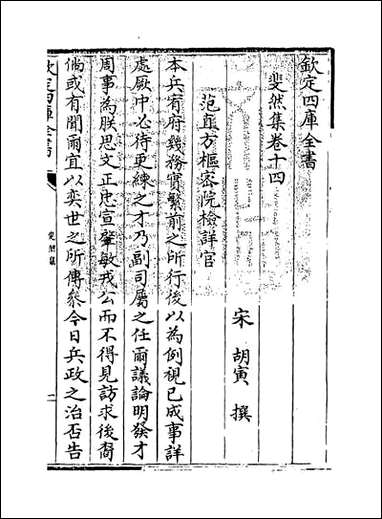 欽定四庫全書
斐然集卷十四
宋 胡寅 撰
范直方樞密院檢詳官
本兵宥府幾務實繁前之所行後以為例視已成事詳
處厥中必待更練之才乃副司屬之任爾議論明發才
周事為朕思文正忠宣肇敏戎公而不得見訪求後裔
倘或有聞爾宜以奕世之所傳參今日兵政之治否告
欽定四庫全書
斐然集